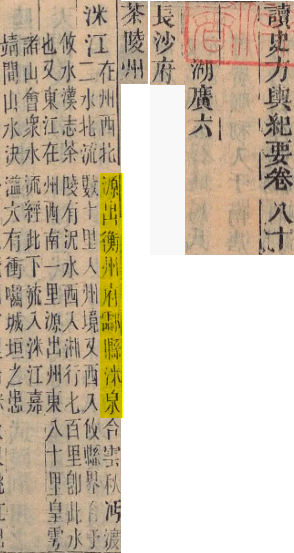 讀史方輿紀要卷八十
湖廣六
長沙府
茶陵州
洣江
在州西北源出衡州府酃縣洣泉合雲秋沔渡
二水北流數十里入州境又西入攸縣界合于
攸水漢志茶陵有泥水西入湘行七百里卽此水
也又東江在州西南一里源出州東八十里皇雩
諸山會衆水流經此下流入洣江嘉
靖間山水決溢大有衝嚙城垣之患